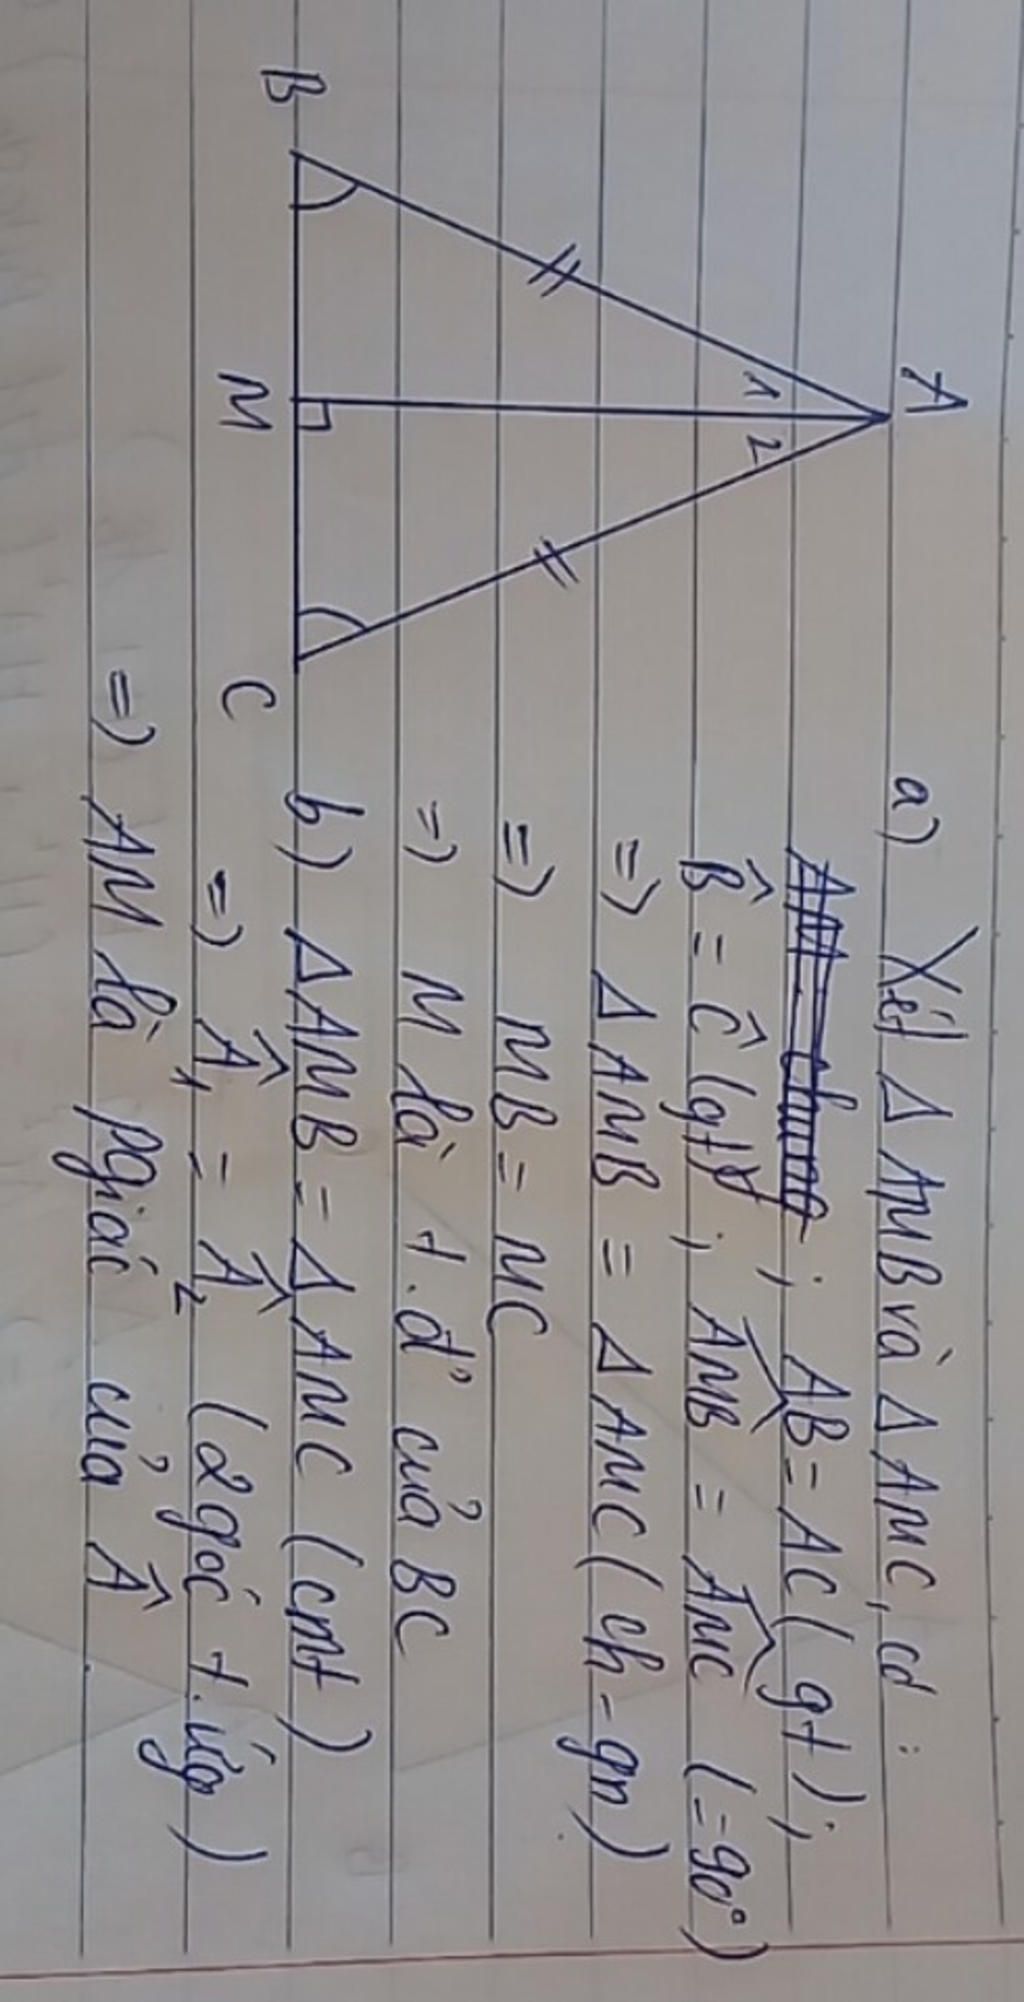 A
1 2
B M C
a) Xét Δ AMB và Δ AMC, có :
AM chung ; AB = AC (gt) ;
B̂ = Ĉ (gt) ; \widehat{AMB} = \widehat{AMC} (=90°)
=> Δ AMB = Δ AMC (ch - gn)
=> MB = MC
=> M là t.đ' của BC
b) Δ AMB = Δ AMC (cmt)
=> Â₁ = Â₂ (2 góc t.ứng)
=> AM là pgiác của Â